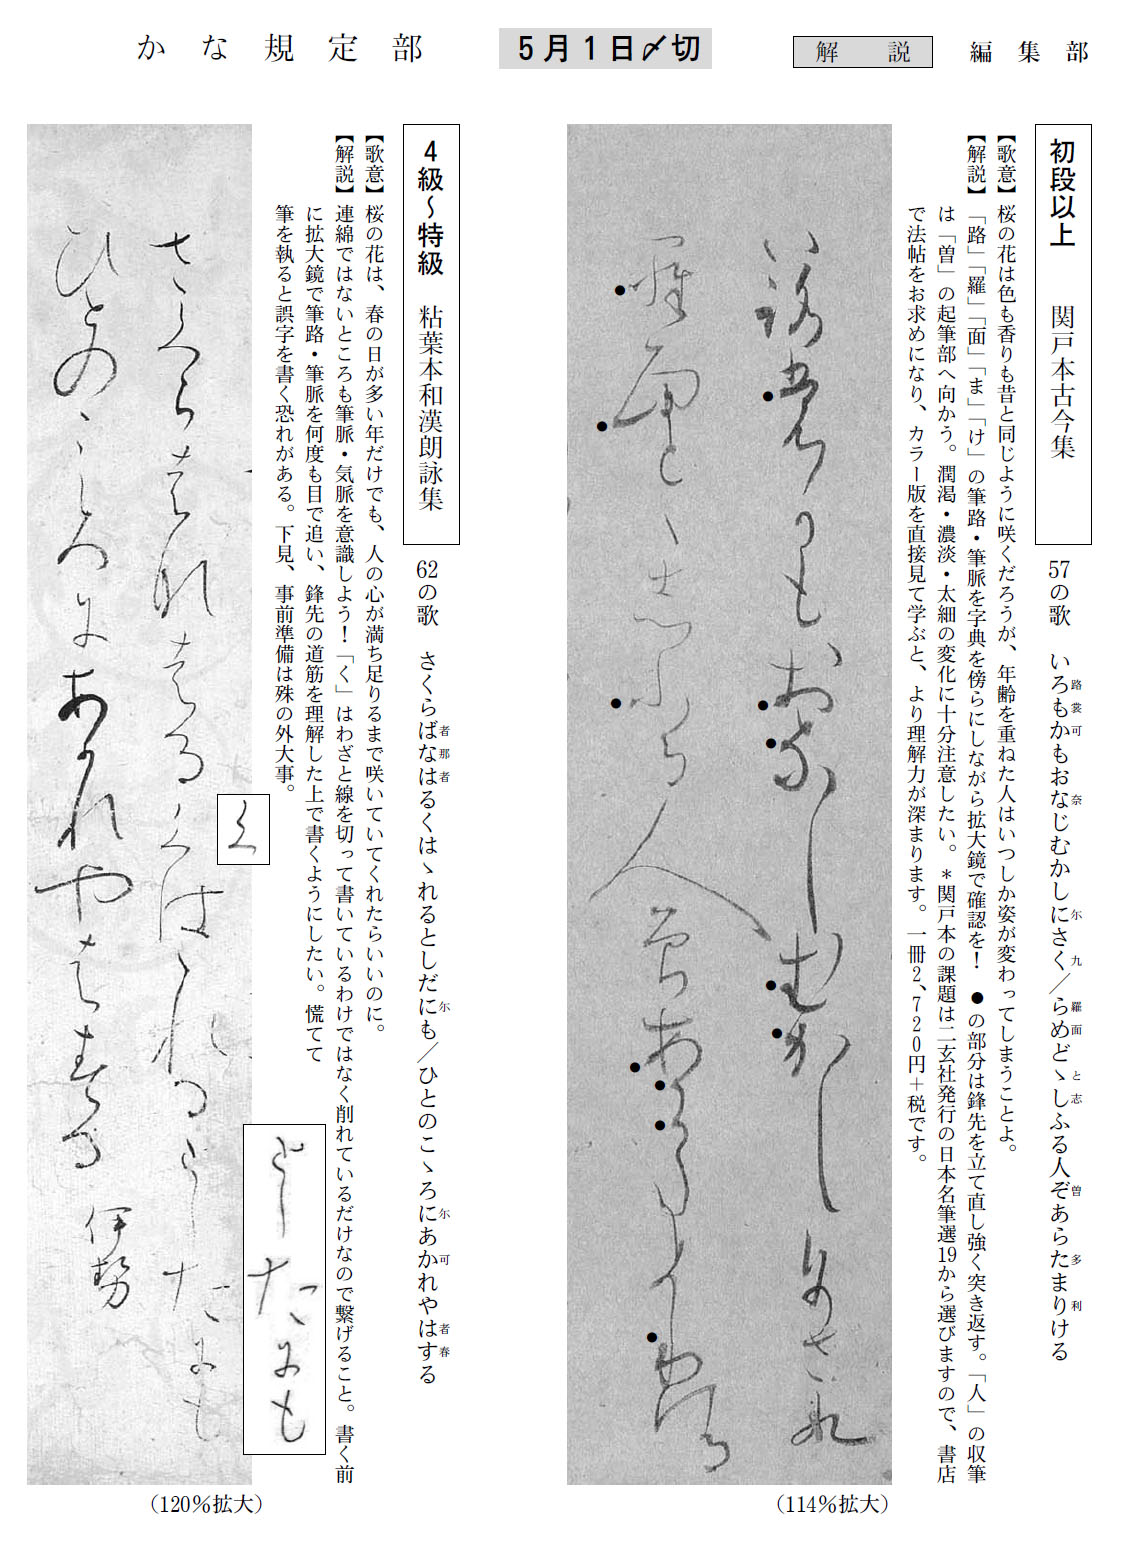 かな規定部
5月1日〆切
解説
編集部
初段以上 関戸本古今集
57の歌 いろもかもおなじむかしにさく／らめどゝしふる人ぞあらたまりける
路裳可 奈 尓 九 羅面 と志 曽 多 利
【歌意】桜の花は色も香りも昔と同じように咲くだろうが、年齢を重ねた人はいつしか姿が変わってしまうことよ。
【解説】「路」「羅」「面」「ま」「け」の筆路・筆脈を字典を傍らにしながら拡大鏡で確認を！ ●の部分は鋒先を立て直し強く突き返す。「人」の収筆
は「曽」の起筆部へ向かう。潤渇・濃淡・太細の変化に十分注意したい。＊関戸本の課題は二玄社発行の日本名筆選19から選びますので、書店
で法帖をお求めになり、カラー版を直接見て学ぶと、より理解力が深まります。一冊2、720円＋税です。
（114％拡大）
4級〜特級 粘葉本和漢朗詠集
62の歌 さくらばなはるくはゝれるとしだにも／ひとのこゝろにあかれやはする
者那者 尓 尓 可 者春
【歌意】桜の花は、春の日が多い年だけでも、人の心が満ち足りるまで咲いていてくれたらいいのに。
【解説】連綿ではないところも筆脈・気脈を意識しよう！「く」はわざと線を切って書いているわけではなく削れているだけなので繋げること。書く前
に拡大鏡で筆路・筆脈を何度も目で追い、鋒先の道筋を理解した上で書くようにしたい。慌てて
筆を執ると誤字を書く恐れがある。下見、事前準備は殊の外大事。
く
としたにも
さくら者那者るくはゝれるとしたにも
ひとのこゝろ尓あ可れや者春る
伊勢
（120％拡大）